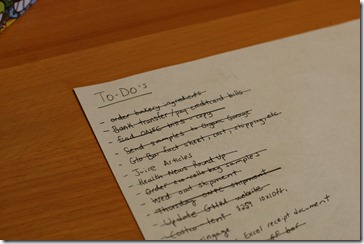 To-Do's
- order bakery ingredients
- Bank transfer/pay creditcard bills
- copy
- Send samples to Organic Garage
- Gto Bar fact sheet, cost, shipping, etc.
- Juice Articles
- Health News Round Up
- Order samples
- Wed. out shipment
- Thursday shipment
- Update website
- Costco tent $259 10x10ft.
engage
Excel receipt document